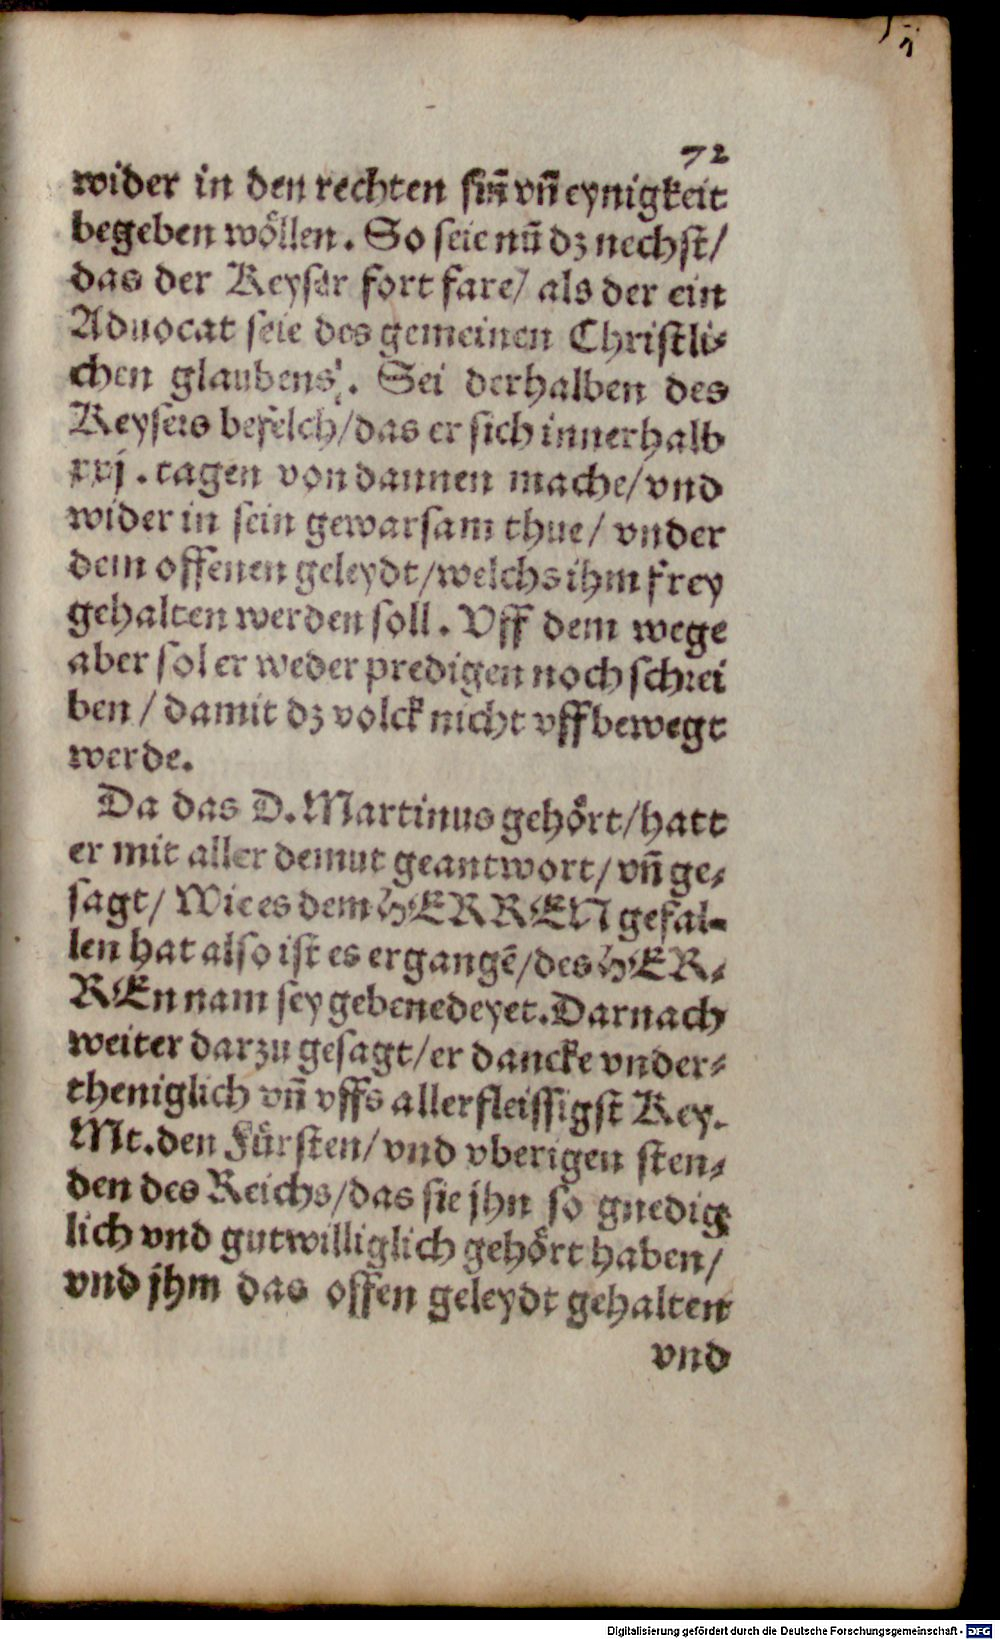 72
wider in den rechten siñ vñ eynigkeit
begeben wöllen. So seie nũ dz nechst/
das der Keyser fort fare/ als der ein
Aduocat seie des gemeinen Christli⸗
chen glaubens. Sei derhalben des
Keysers befelch/das er sich innerhalb
xxj. tagen von dannen mache/vnd
wider in sein gewarsam thue/ vnder
dem offenen geleydt/welchs ihm frey
gehalten werden soll. Vff dem wege
aber sol er weder predigen noch schrei
ben/ damit dz volck nicht vffbewegt
werde.
Da das D. Martinus gehört/hatt
er mit aller demut geantwort/ vñ ge⸗
sagt/ Wie es dem HERREN gefal⸗
len hat also ist es ergangẽ/des HER⸗
REn nam sey gebenedeyet. Darnach
weiter darzu gesagt/er dancke vnder⸗
theniglich vñ vffs allerfleissigst Key.
Mt. den Fürsten/ vnd vberigen sten⸗
den des Reichs/das sie jhn so gnedig
lich vnd gutwilliglich gehört haben/
vnd jhm das offen geleydt gehalten
vnd
Digitalisierung gefördert durch die Deutsche Forschungsgemeinschaft - DFG